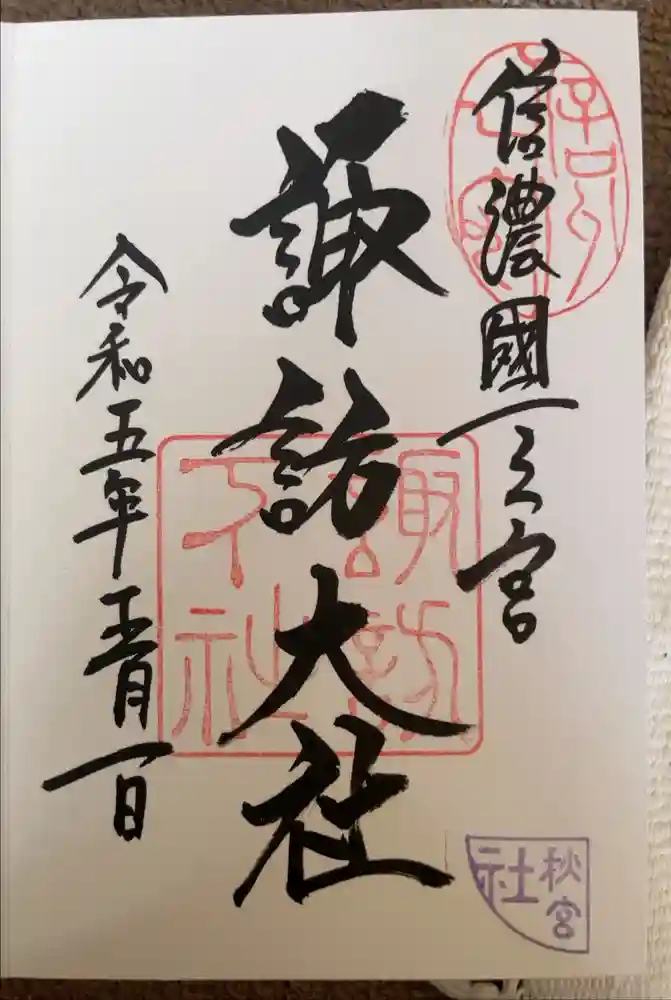 信濃國一之宮
諏訪大社
令和五年五月一日
諏訪
下社
秋宮
社